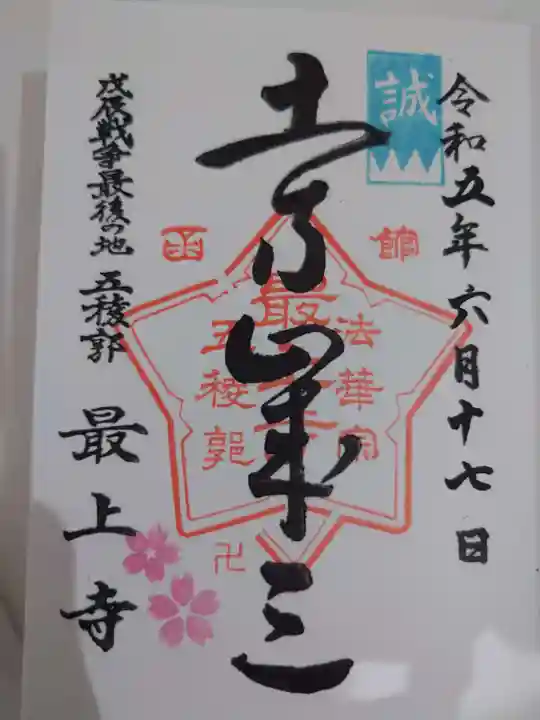 令和五年六月十七日
誠
土方歳三
函館
法華宗
最上寺
五稜郭
卍
戊辰戦争最後の地 五稜郭
最上寺